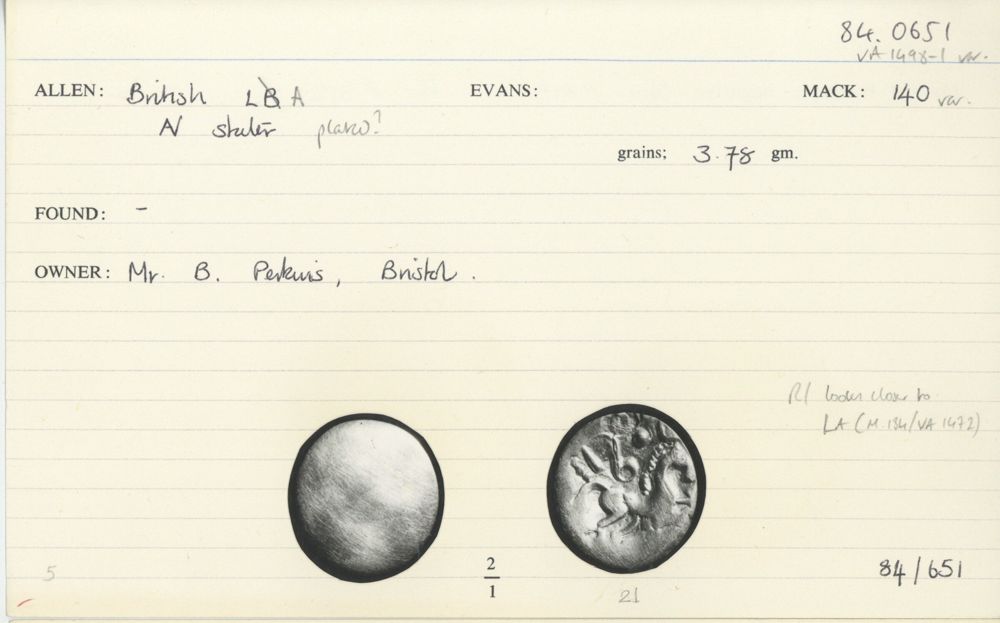 84.0651
VA 1498-1 var.
ALLEN: British LB A EVANS: MACK: 140 var.
N stater plated?
grains; 3.78 gm.
FOUND: -
OWNER: Mr. B. Perkins, Bristol.
R/ looks closer to
LA (M.134/VA 1472)
2
1
5 21 84/651